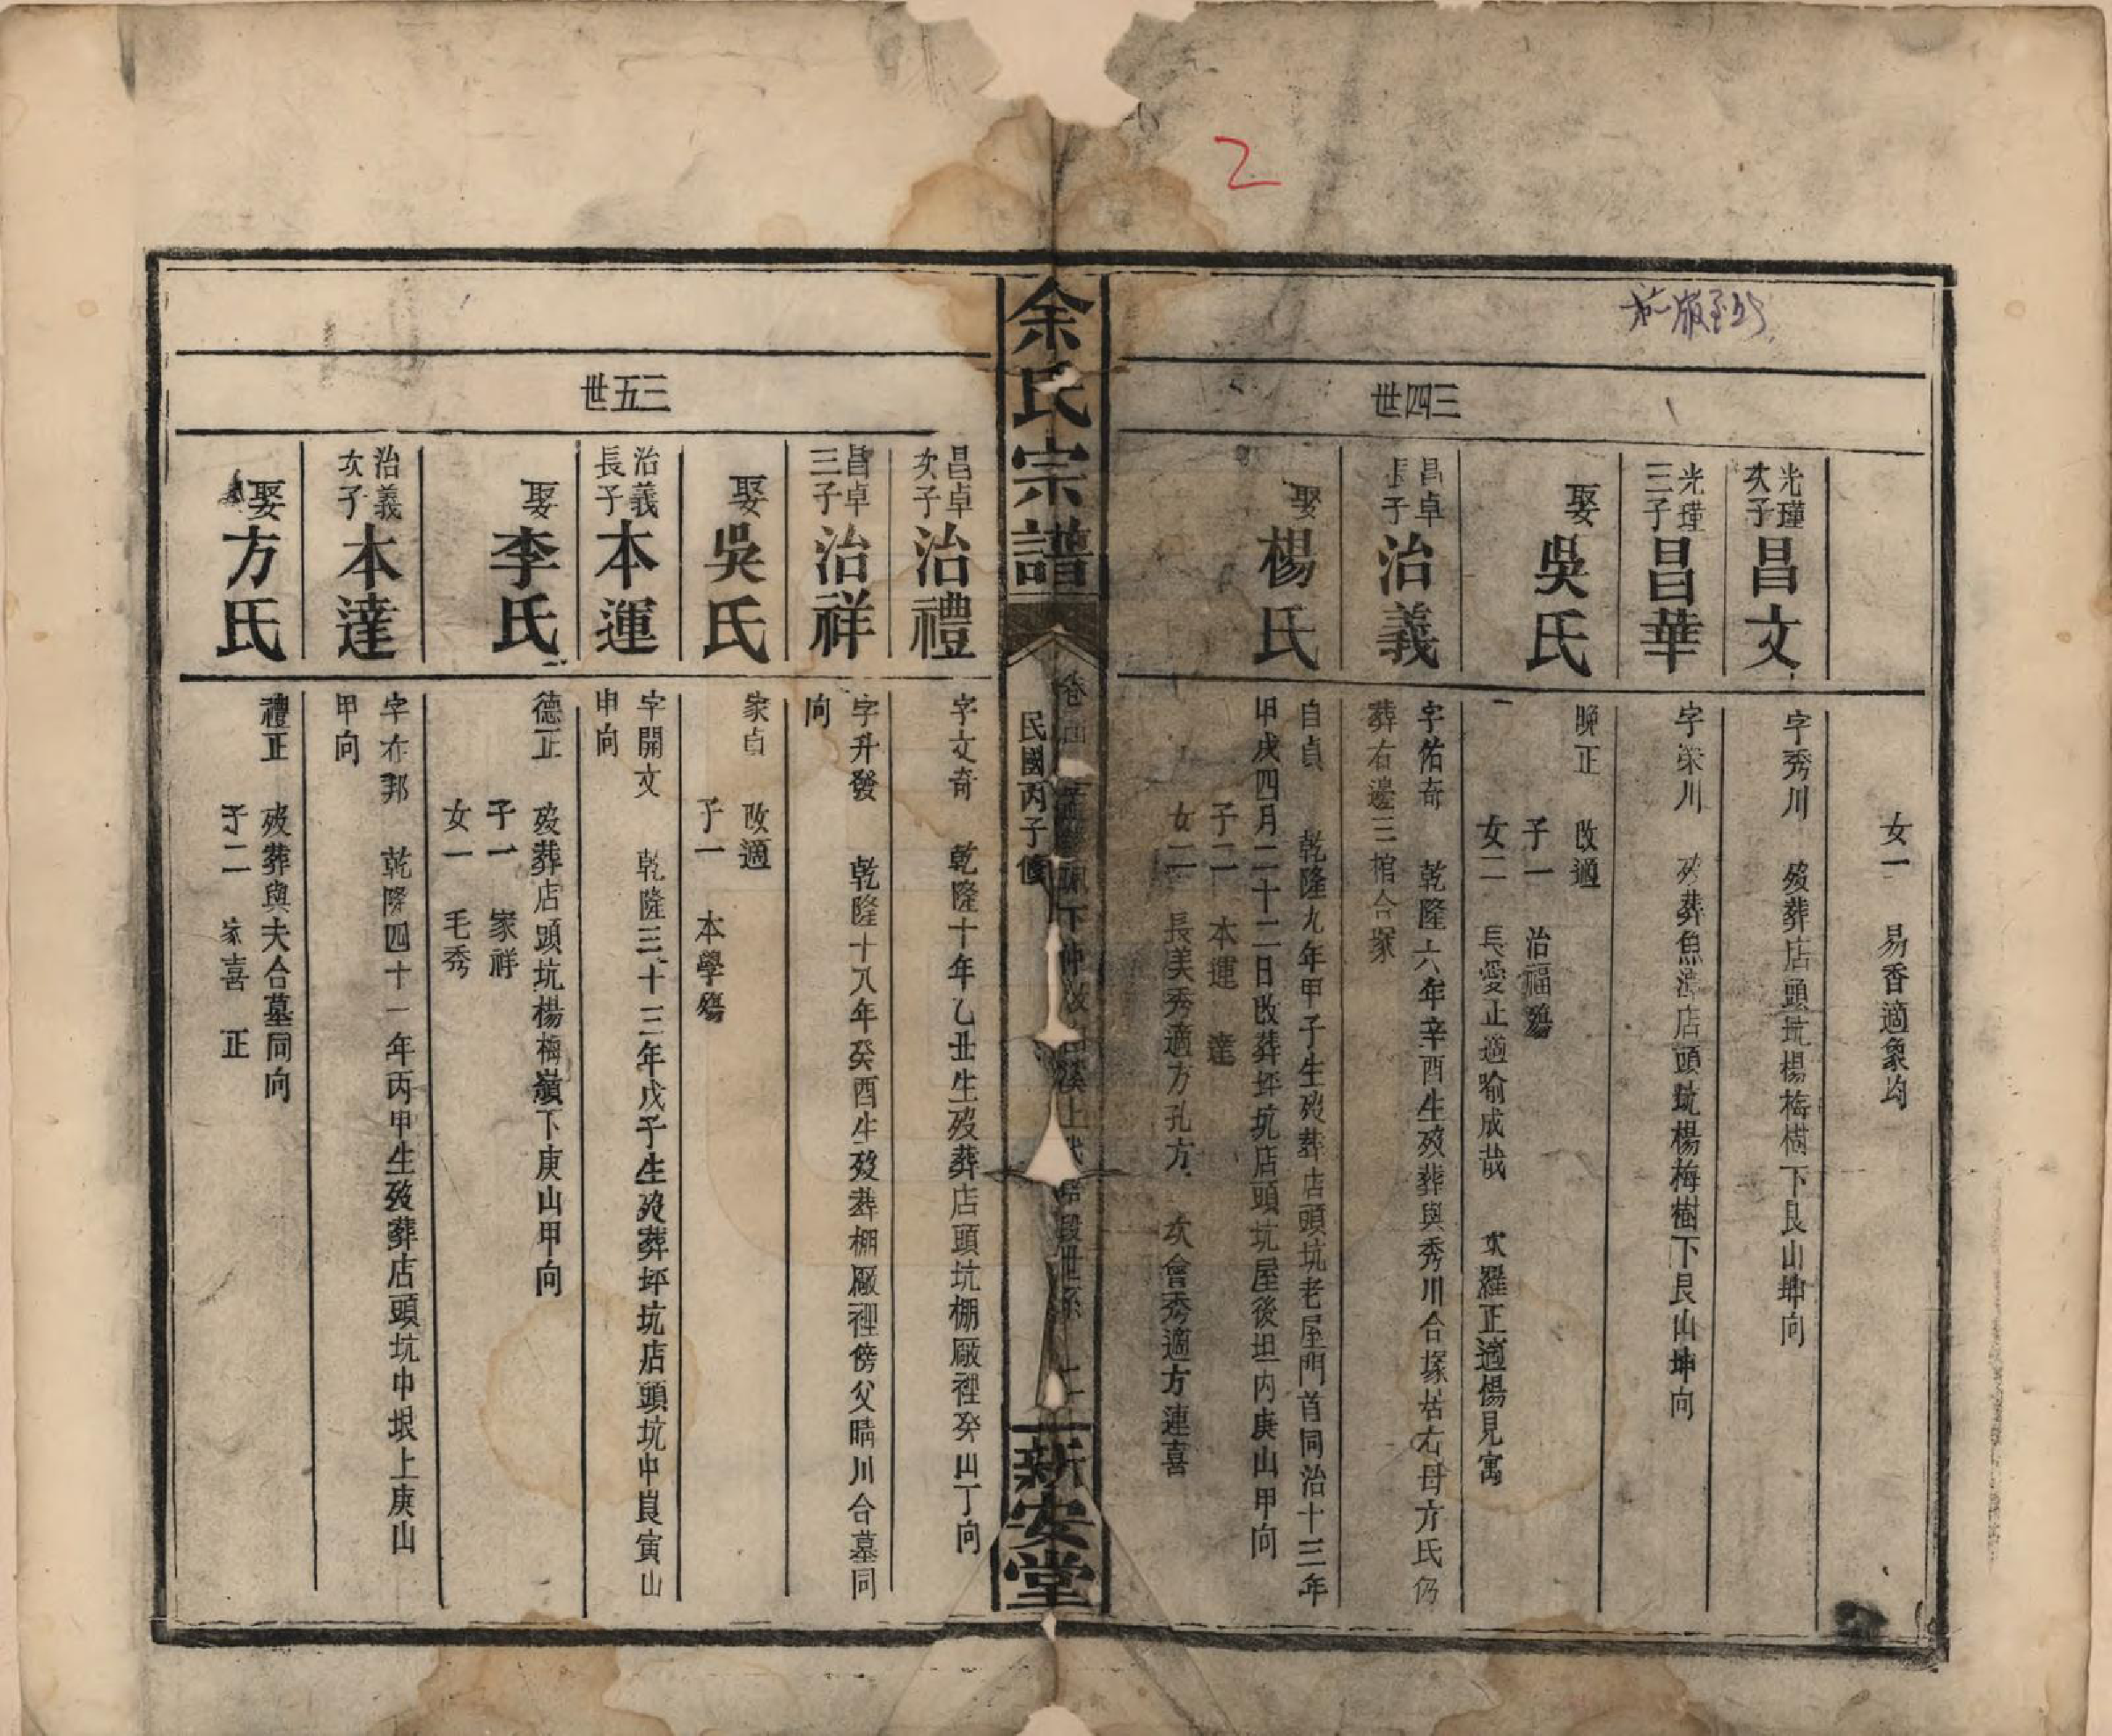 2
三四世
女一　易香適象均
光瑾次子
昌文
字秀川　歿葬店頭坑楊梅樹下艮山坤向
光瑾三子
昌華
字榮川　歿葬魚　店頭坑楊梅樹下艮山坤向
娶
吳氏
晚正　改適
子一　治福殤
女二　長愛正適喻成哉　次羅正適楊見寓
昌卓長子
治義
字佑奇　乾隆六年辛酉生歿葬與秀川合塚居右母方氏仍
葬右邊三棺合塚
娶
楊氏
自貞　乾隆九年甲子生歿葬店頭坑老屋門首同治十三年
甲戌四月二十二日改葬坪坑店頭坑屋後坦內庚山甲向
子二　本運　達
女二　長美秀適方孔方　次會秀適方連喜
余氏宗譜
卷　下　上　世系
民國丙子修
新安堂
三五世
昌卓次子
治禮
字文奇　乾隆十年乙丑生歿葬店頭坑棚廠裡癸山丁向
昌卓三子
治祥
字升發　乾隆十八年癸酉生歿葬棚廠裡傍父晴川合墓同
向
娶
吳氏
家貞　改適
子一　本學殤
治義長子
本運
字開文　乾隆三十三年戊子生歿葬坪坑店頭坑中艮寅山
申向
娶
李氏
德正　歿葬店頭坑楊梅嶺下庚山甲向
子一　家祥
女一　毛秀
治義次子
本達
字布邦　乾隆四十一年丙申生歿葬店頭坑中垠上庚山
甲向
娶
方氏
禮正　歿葬與夫合墓同向
子二　家喜　正